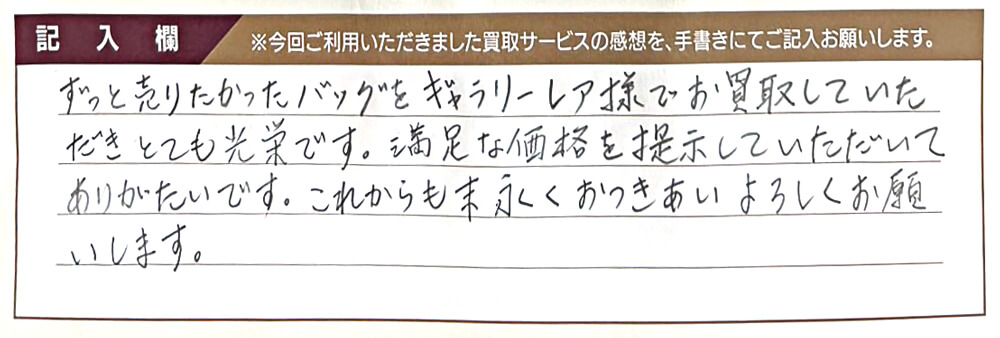 記入欄
※今回ご利用いただきました買取サービスの感想を、手書きにてご記入お願いします。
ずっと売りたかったバッグをギャラリーレア様でお買取していた
だきとても光栄です。満足な価格を提示していただいて
ありがたいです。これからも末永くおつきあいよろしくお願
いします。